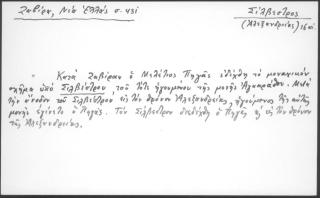 Ζαβίρα, Νέα Ἑλλάς σ. 431
Σίλβεστρος
(Ἀλεξανδρείας) 16 αἰ.
" Κατά Ζαβίραν ὁ Μελέτιος Πηγᾶς ἐδέχθη τό μοναχικόν
σχῆμα ὑπό Σιλβέστρου, τοῦ τότε ἡγουμένου τῆς μονῆς Ἀγκαράθου. Μετά
τήν ἄνοδον τοῦ Σιλβέστρου εἰς τόν θρόνον Ἀλεξανδρείας, ἡγούμενος τῆς αὐτῆς
μονῆς ἐγένετο ὁ Πηγᾶς. Τόν Σίλβεστρον διεδέχθη ὁ Πηγᾶς καί εἰς τόν θρόνον
τῆς Ἀλεξανδρείας.